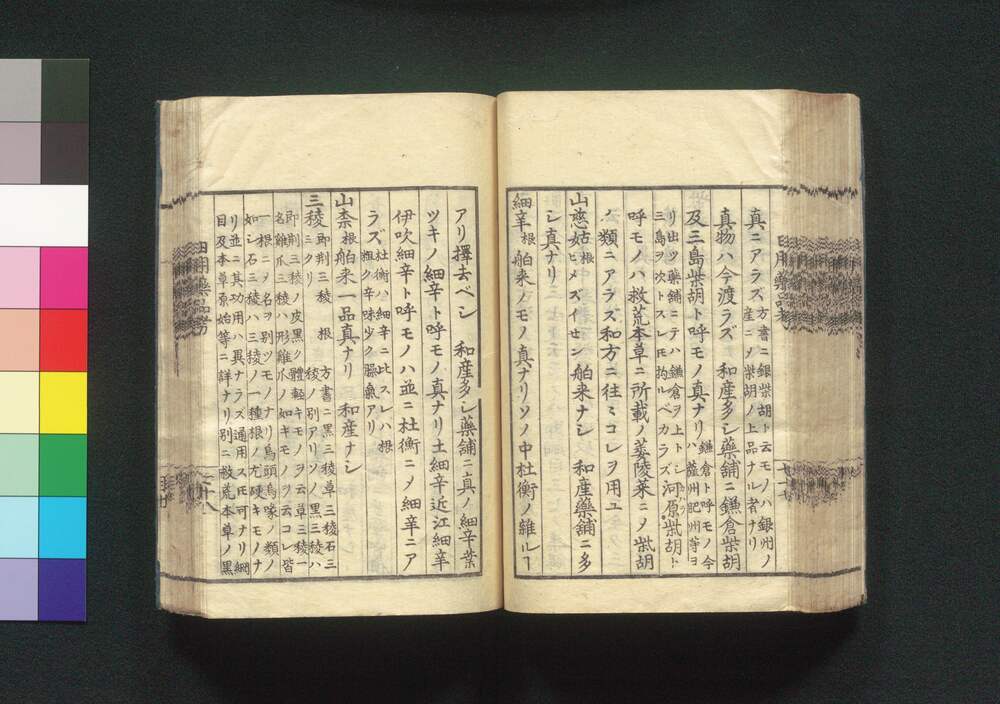 真ニアラズ方書ニ銀柴胡ト云モノハ銀州ノ
産ニ〆柴胡ノ上品ナル者ナリ
真物ハ今渡ラズ 和産多シ藥舗ニ鎌倉柴胡
及三島柴胡ト呼モノ真ナリ鎌倉ト呼モノ今
ハ 藍州肥州等ヨ
リ出ツ藥舗ニテハ鎌倉ヲ上トシ
三島ヲ次トスレ𪜈拘ルベカラズ河原柴胡ト
呼モノハ救荒本草ニ所載ノ蔞陵菜ニ〆柴胡
ノ類ニアラズ和方ニ往〻コレヲ用ユ
山慈姑根ヒメズイセン舶来ナシ 和産藥舗ニ多
シ真ナリ
細辛根 舶来ノモノ真ナリソノ中杜衡ノ雑ルヿ
アリ擇去ベシ 和産多シ藥舗ニ真ノ細辛葉
ツキノ細辛ト呼モノ真ナリ土細辛近江細辛
伊吹細辛ト呼モノハ並ニ杜衡ニ〆細辛ニア
ラズ杜衡ハ細辛ニ比スレハ根
粗ク辛味少ク臊氣アリ
山柰根 舶来一品真ナリ 和産ナシ
三稜即荊三稜 根 方書ニ黒三稜草三稜石三
ミクリ 稜ノ別アリソノ黒三稜ハ
即荊三稜ノ皮黒ク體軽キモノヲ云草三稜一
名雞爪三稜ハ形雞爪ノ如キモノヲ云コレ皆
一根ニ〆名ヲ別ツモノナリ烏頭烏喙ノ類ノ
如シ石三稜ハ三稜ノ一種根ノ尤硬キモノナ
リ並ニ其功用ハ異ナラズ通用ス𪜈可ナリ綱
目及本草原始等ニ詳ナリ別ニ救荒本草ノ黒
日用藥品考